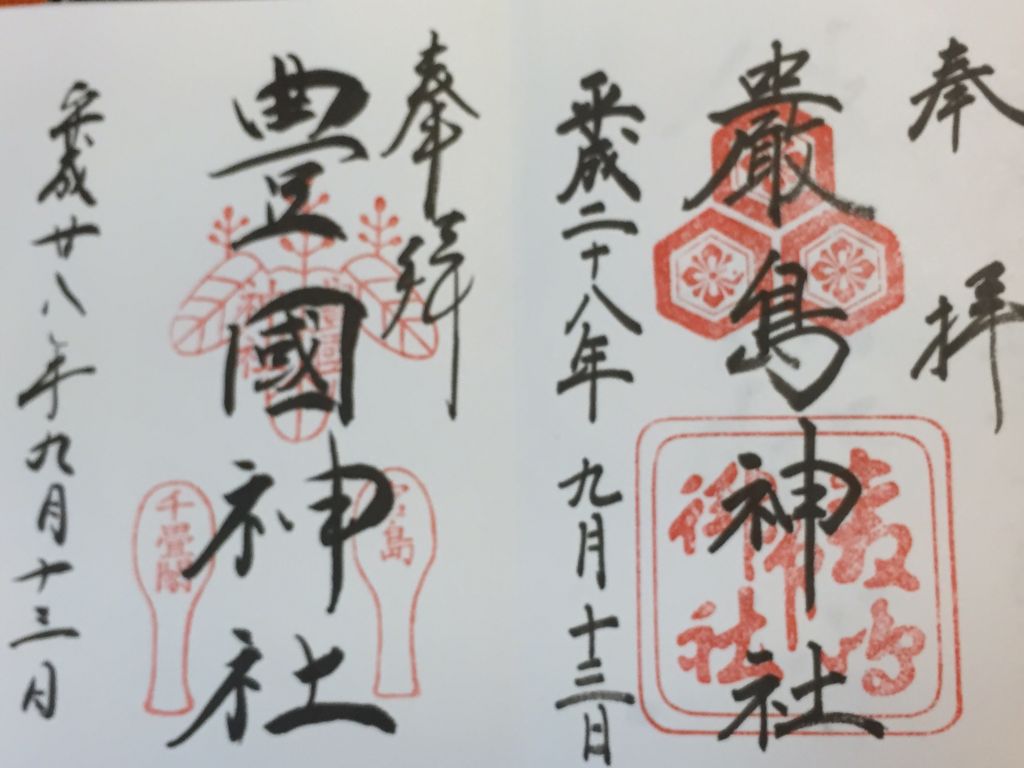 奉拝
厳島神社
平成二十八年九月十三日
奉拜
豊國神社
宮島
千畳閣
平成廿八年九月十三日